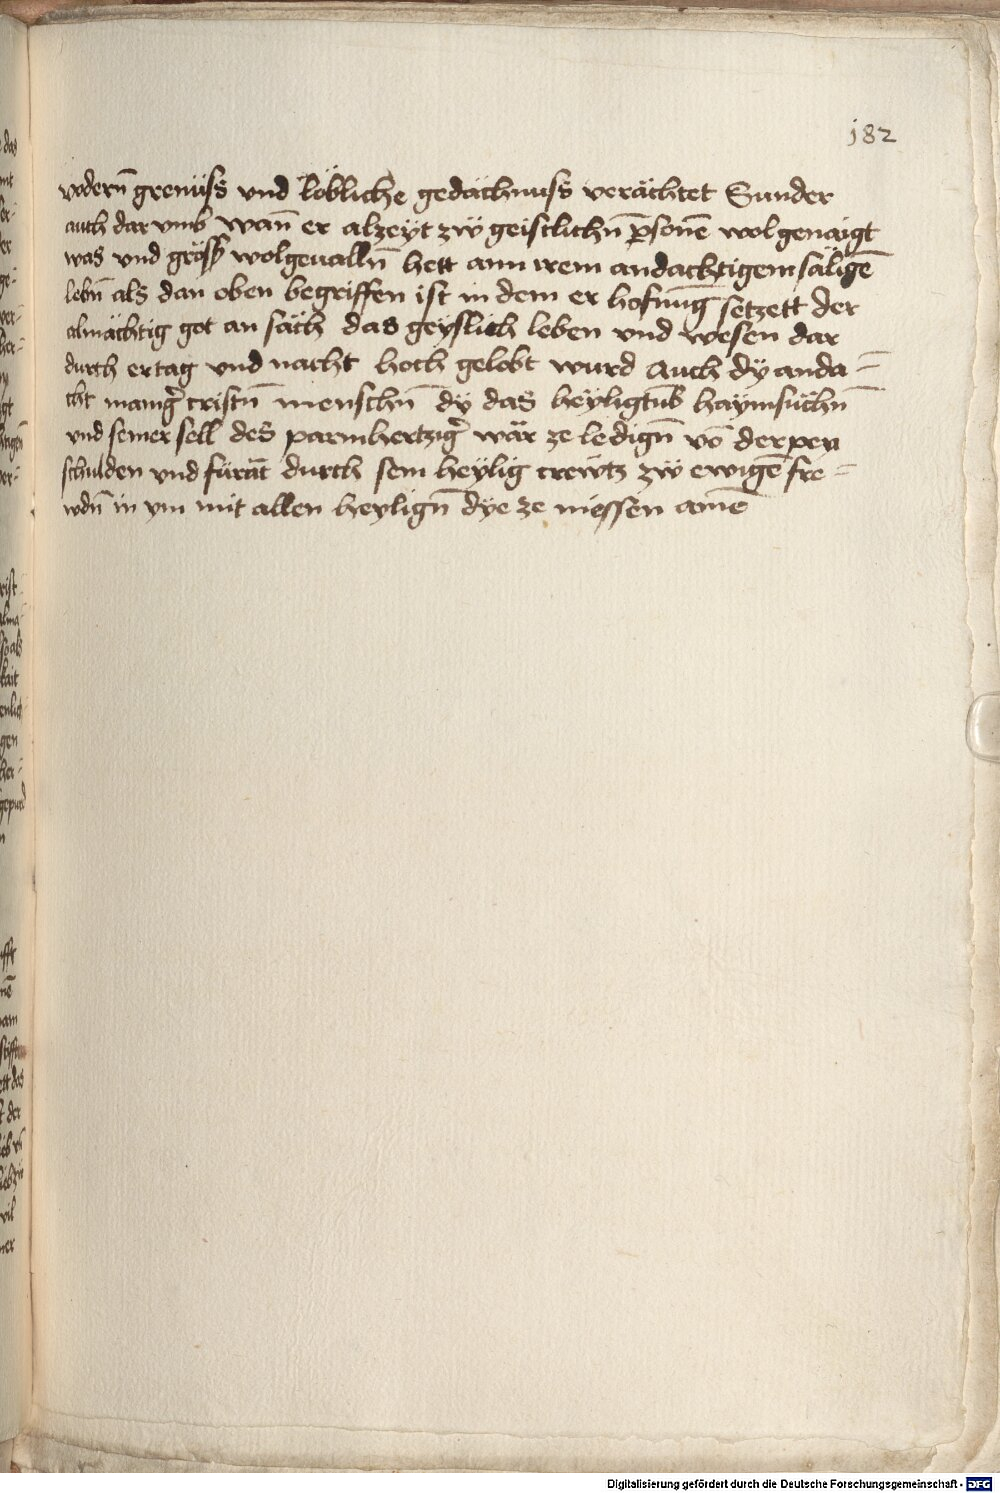 182
vodern̄ grenüss vnd löbliche gedächnuss verächtet Sunder
auch dar vmb wan̄ er alzeyt zẅ geistlichn̄ ꝑsonē wol genaigt
was vnd gröss wolgeualln̄ hett ann irem andachtigem säligē
lebn̄ als dan oben begriffen ist in dem er hofnūg setzett der
almächtig got an säch das geyslich leben vnd wesen dar
durch er tag vnd nacht hoch gelobt wurd Auch dy anda=
cht manigͬ cristn̄ menschn̄ dÿ das heÿligtūb haÿmsüchn̄
vnd seiner sell des parmhertzigͬ wär ze ledign̄ vō der pen
schulden vnd fürät durch sein heÿlig crewtz zẅ ewigē fre=
wdn̄ in ym mit allen heylign̄ dye ze niessen amē
Digitalisierung gefördert durch die Deutsche Forschungsgemeinschaft - DFG